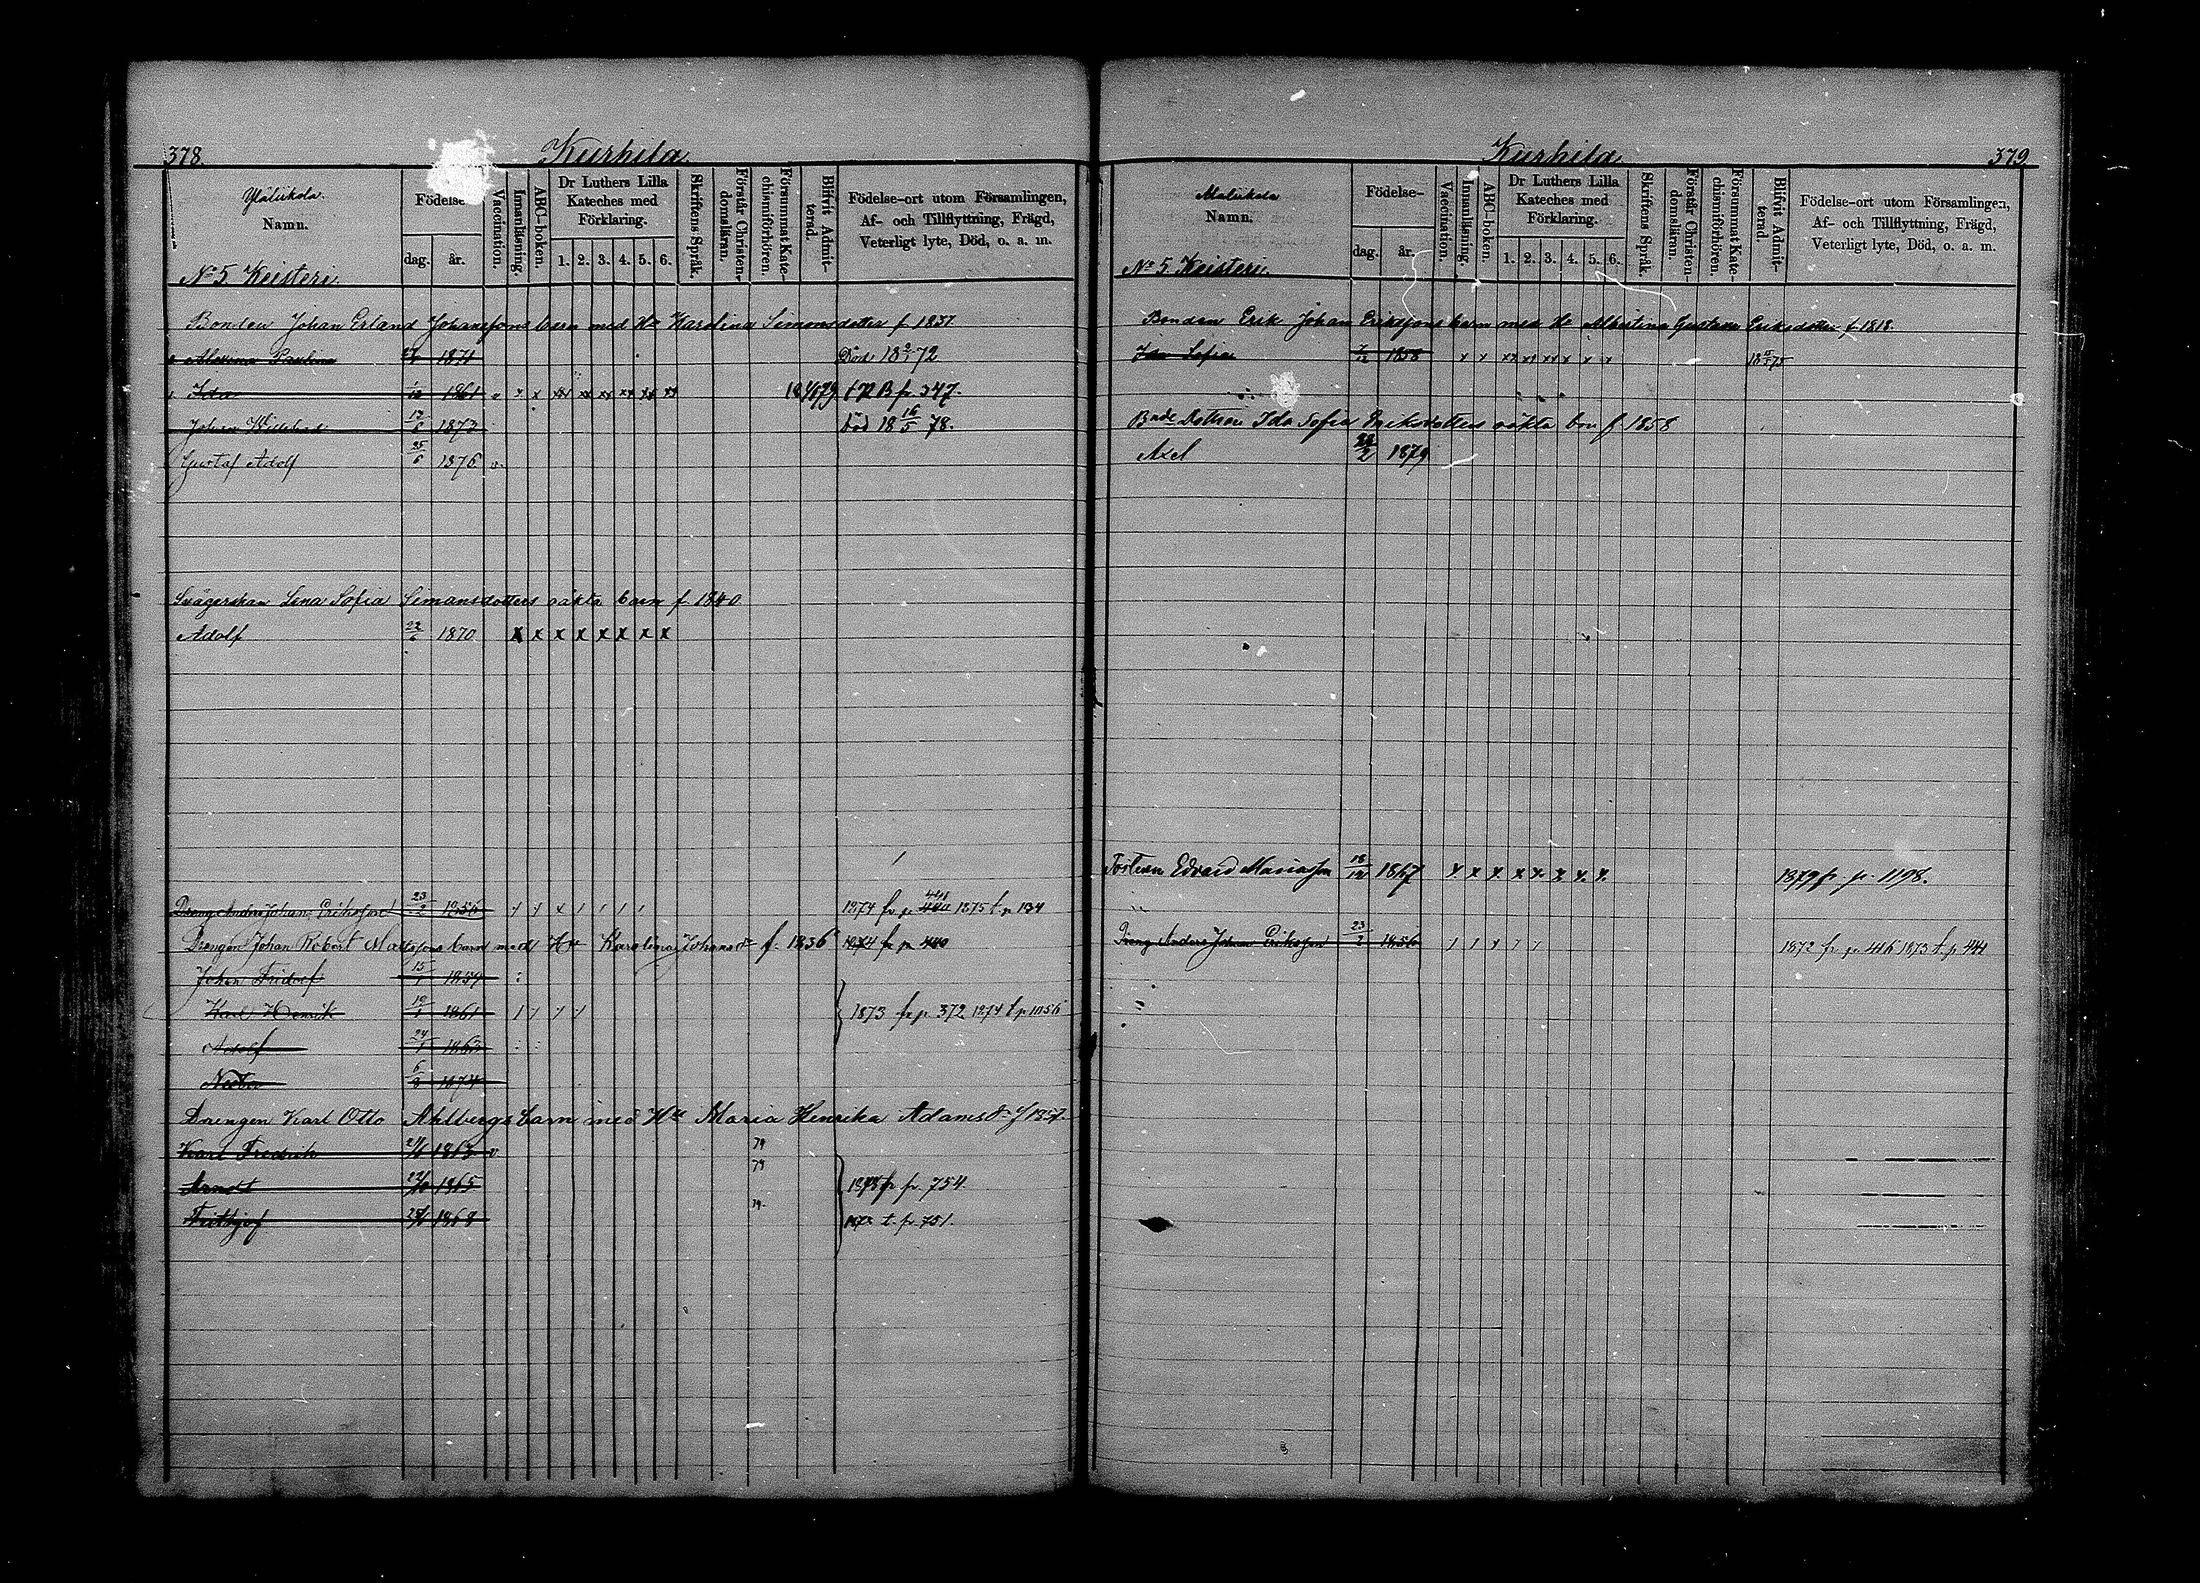 378.
Kurhila
Ylälukola.
Namn.
Födelse-
dag. år.
Vaccination.
Innanläsning.
ABC-boken.
Dr Luthers Lilla
Kateches med
Förklaring.
1. 2. 3. 4. 5. 6.
Skriftens Språk.
Förstår Christendomsläran.
Försummat Katechismiförhören.
Blifvit Admitterad.
Födelse-ort utom Församlingen,
Af- och Tillflyttning, Frägd,
Veterligt lyte, Död, o. a. m.
No 5. Keisteri.
Bonden Johan Erland Johanssons barn med Hu Karolina Simonsdotter f. 1837
Paulina 1871 Död 18 2/1 72
Ida 1/12 1861 v x x xx xx xx xx xx xx f N B p. 347.
Johan 17/6 1873 Död 18 16/5 78.
Gustaf Adolf 25/6 1876 v.
Svägerskan Lena Sofia Simonsdotters oäkta barn f. 1840
Adolf 22/6 1870 x x x x x x x x
Dreng Anders Johan Eriksson 23/2 1856 1874 fr p 1875 t p 134
Drengen Johan Robert Matssons barn med Hu Karolina Johansdr f. 1836 1874 fr p 440
Johan Fridolf 15/1 1859
Karl Henrik 19/1 1861 1873 fr p 372 1874 t p 1056
Adolf 24/1 1863
6/3 1874
Drengen Karl Otto Ahlbergs barn med Hu Maria Henrika Adamsdr f 1837.
Karl Fredrik 1863 v 79
Arndt 1865 79 fr p. 754
Frithjof 1868 79. t. p. 751.
Kurhila
379.
Malukola
Namn.
Födelse-
dag. år.
Vaccination.
Innanläsning.
ABC-boken.
Dr Luthers Lilla
Kateches med
Förklaring.
1. 2. 3. 4. 5. 6.
Skriftens Språk.
Förstår Christendomsläran.
Försummat Katechismiförhören.
Blifvit Admitterad.
Födelse-ort utom Församlingen,
Af- och Tillflyttning, Frägd,
Veterligt lyte, Död, o. a. m.
No 5. Keisteri.
Bonden Erik Johan Erikssons barn med Hu Albertina Gustava Eriksdotter f. 1818.
Ida Sofia 7/12 1858 x x xx xx xx x x x
Bnde Dottren Ida Sofia Eriksdotters oäkta barn f 1858
Axel 28/2 1879
Edvard Mariasson 18/12 1867 x x x x x x x x 1879 fr p. 1198.
Dreng Anders Johan Eriksson 23/2 1856 1872 fr p. 416 1873 t p 441